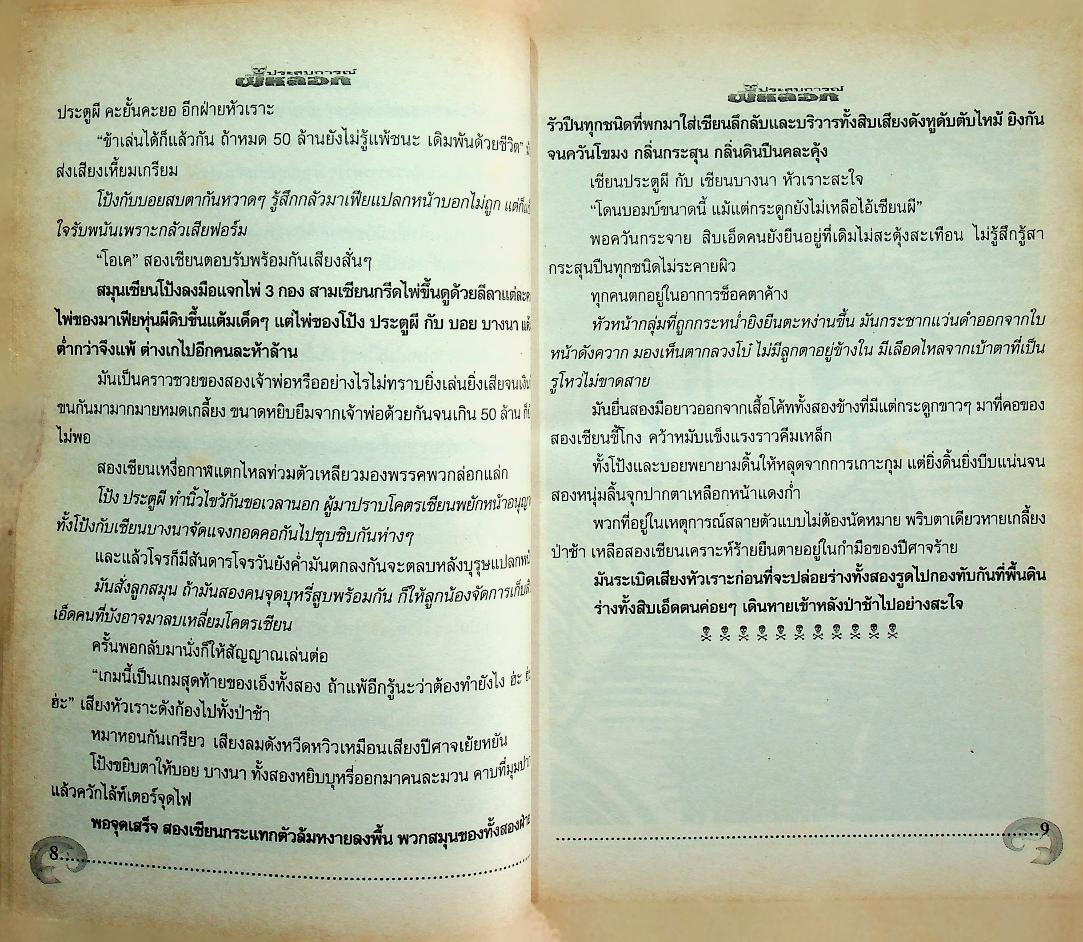 ประสบการณ์
ผีหลอก
ประตูผี คะยั้นคะยอ อีกฝ่ายหัวเราะ
“ข้าเล่นได้ก็แล้วกัน ถ้าหมด 50 ล้านยังไม่รู้แพ้ชนะ เดิมพันด้วยชีวิต”
ส่งเสียงเหี้ยมเกรียม
โป้งกับบอยสบตากันหวาดๆ รู้สึกกลัวมาเฟียแปลกหน้าบอกไม่ถูก แต่ก็
ใจรับพนันเพราะกลัวเสียฟอร์ม
“โอเค” สองเซียนตอบรับพร้อมกันเสียงสั่นๆ
สมุนเซียนโป้งลงมือแจกไพ่ 3 กอง สามเซียนกรีดไพ่ขึ้นดูด้วยลีลาแต่ละ
ไพ่ของมาเฟียหุ่นผีดิบขึ้นแต้มเด็ดๆ แต่ไพ่ของโป้ง ประตูผี กับ บอย บางนา
ต่ำกว่าจึงแพ้ ต่างเกไปอีกคนละห้าล้าน
มันเป็นคราวซวยของสองเจ้าพ่อหรืออย่างไรไม่ทราบยิ่งเล่นยิ่งเสียจนเงิน
ขนกันมามากมายหมดเกลี้ยง ขนาดหยิบยืมจากเจ้าพ่อด้วยกันจนเกิน 50 ล้าน
ไม่พอ
สองเซียนเหงื่อกาฬแตกไหลท่วมตัวเหลียวมองพรรคพวกล่อกแล่ก
โป้ง ประตูผี ทำนิ้วไขว้กันขอเวลานอก ผู้มาปราบโคตรเซียนพยักหน้า
ทั้งโป้งกับเซียนบางนาจัดแจงกอดคอกันไปซุบซิบกันห่างๆ
และแล้วโจรก็มีสันดารโจรวันยังค่ำมันตกลงกันจะตลบหลังบุรุษแปลก
มันสั่งลูกสมุน ถ้ามันสองคนจุดบุหรี่สูบพร้อมกัน ก็ให้ลูกน้องจัดการเก็บ
เอ็ดคนที่บังอาจมาลบเหลี่ยมโคตรเซียน
ครั้นพอกลับมานั่งก็ให้สัญญาณเล่นต่อ
“เกมนี้เป็นเกมสุดท้ายของเอ็งทั้งสอง ถ้าแพ้อีกรู้นะว่าต้องทำยังไง ฮ่ะ
ฮ่ะ” เสียงหัวเราะดังก้องไปทั้งป่าช้า
หมาหอนกันเกรียว เสียงลมดังหวีดหวิวเหมือนเสียงปีศาจเย้ยหยัน
โป้งขยิบตาให้บอย บางนา ทั้งสองหยิบบุหรี่ออกมาคนละมวน คาบที่มุม
แล้วควักไล้ท์เตอร์จุดไฟ
พอจุดเสร็จ สองเซียนกระแทกตัวล้มหงายลงพื้น พวกสมุนของทั้งสองฝ่าย
8
ประสบการณ์
ผีหลอก
รัวปืนทุกชนิดที่พกมาใส่เซียนลึกลับและบริวารทั้งสิบเสียงดังหูดับตับไหม้ ยิงกัน
จนควันโขมง กลิ่นกระสุน กลิ่นดินปืนคละคุ้ง
เซียนประตูผี กับ เซียนบางนา หัวเราะสะใจ
“โดนบอมบ์ขนาดนี้ แม้แต่กระดูกยังไม่เหลือไอ้เซียนผี”
พอควันกระจาย สิบเอ็ดคนยังยืนอยู่ที่เดิมไม่สะดุ้งสะเทือน ไม่รู้สึกรู้สา
กระสุนปืนทุกชนิดไม่ระคายผิว
ทุกคนตกอยู่ในอาการช็อคตาค้าง
หัวหน้ากลุ่มที่ถูกกระหน่ำยิงยืนตะหง่านขึ้น มันกระชากแว่นดำออกจากใบ
หน้าดังควาก มองเห็นตากลวงโบ๋ ไม่มีลูกตาอยู่ข้างใน มีเลือดไหลจากเบ้าตาที่เป็น
รูโหว่ไม่ขาดสาย
มันยื่นสองมือยาวออกจากเสื้อโค้ททั้งสองข้างที่มีแต่กระดูกขาวๆ มาที่คอของ
สองเซียนขี้โกง คว้าหมับแข็งแรงราวคีมเหล็ก
ทั้งโป้งและบอยพยายามดิ้นให้หลุดจากการเกาะกุม แต่ยิ่งดิ้นยิ่งบีบแน่นจน
สองหนุ่มลิ้นจุกปากตาเหลือกหน้าแดงก่ำ
พวกที่อยู่ในเหตุการณ์สลายตัวแบบไม่ต้องนัดหมาย พริบตาเดียวหายเกลี้ยง
ป่าช้า เหลือสองเซียนเคราะห์ร้ายยืนตายอยู่ในกำมือของปีศาจร้าย
มันระเบิดเสียงหัวเราะก่อนที่จะปล่อยร่างทั้งสองรูดไปกองทับกันที่พื้นดิน
ร่างทั้งสิบเอ็ดตนค่อยๆ เดินหายเข้าหลังป่าช้าไปอย่างสะใจ
9